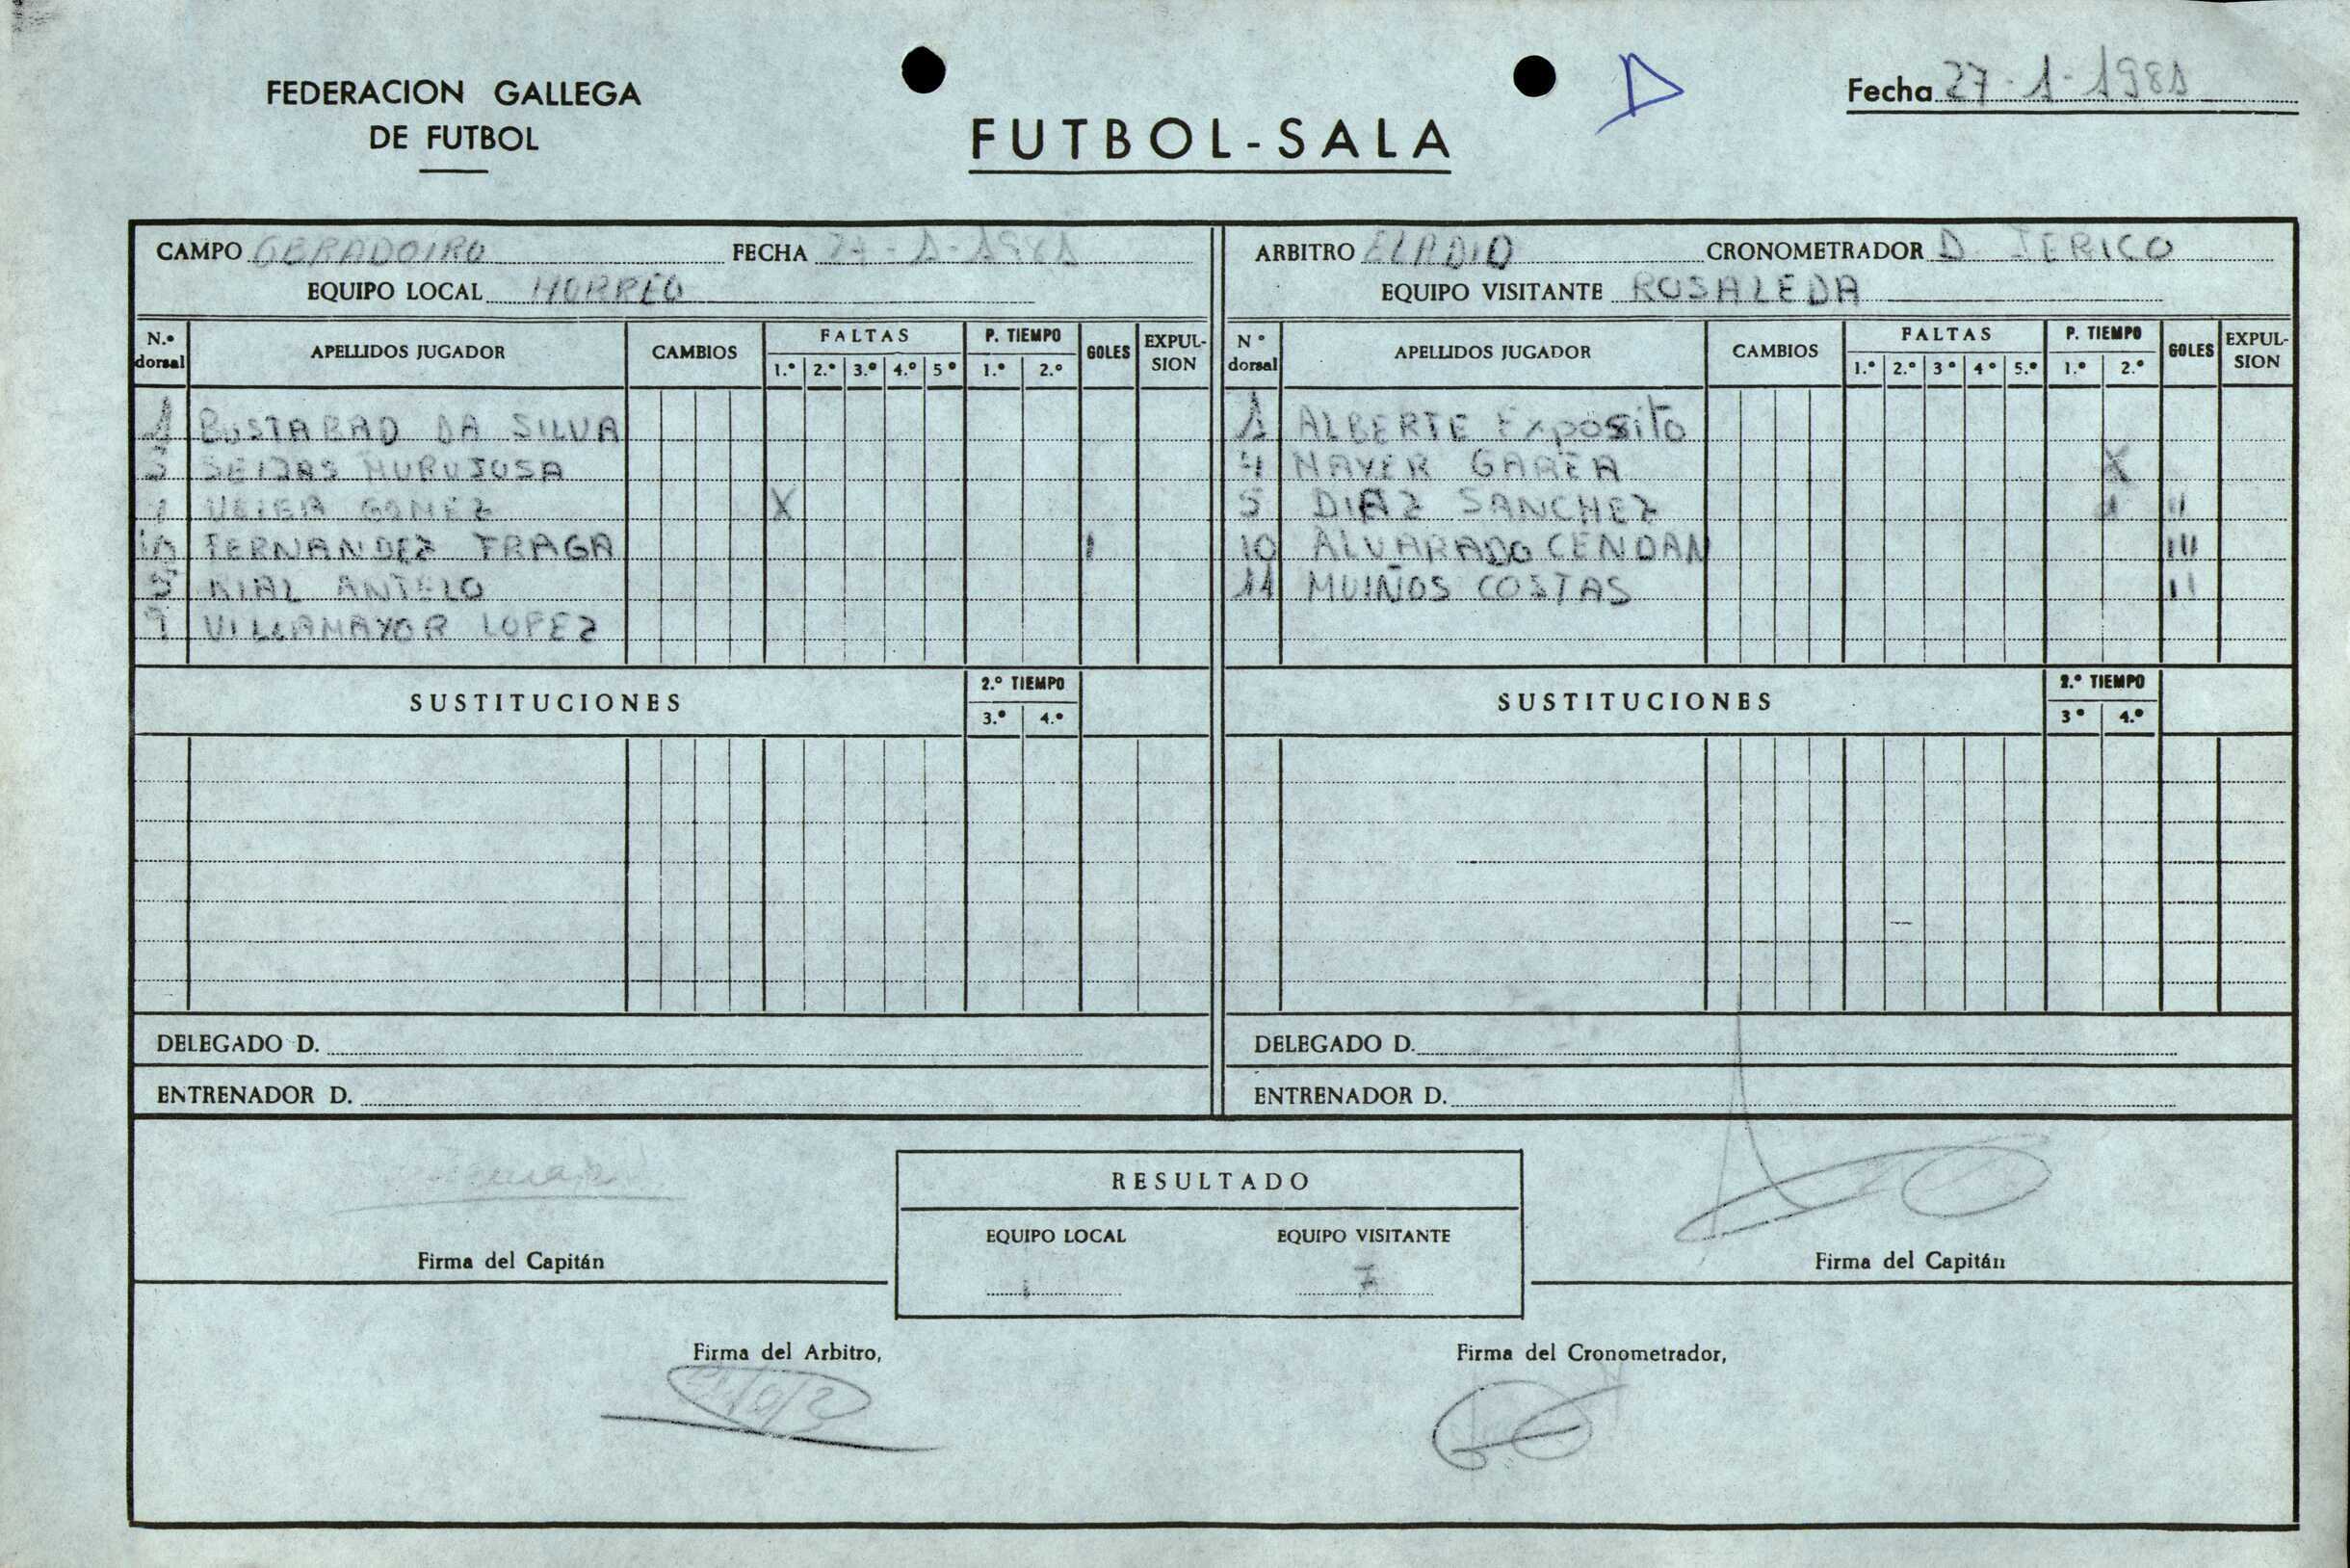 FEDERACION GALLEGA
DE FUTBOL
FUTBOL-SALA
Fecha 27-1-1981
CAMPO OBRADOIRO FECHA 27-1-1981
EQUIPO LOCAL HORREO
N.º dorsal APELLIDOS JUGADOR CAMBIOS FALTAS 1.º 2.º 3.º 4.º 5º P. TIEMPO 1.º 2.º GOLES EXPUL-SION
1 BUSTABAD DA SILVA
SEIJAS MURUJOSA
GOMEZ X
10 FERNANDEZ FRAGA I
5 RIAL ANTELO
VILLAMAYOR LOPEZ
SUSTITUCIONES 2.º TIEMPO
3.º 4.º
DELEGADO D.
ENTRENADOR D.
ARBITRO ELADIO CRONOMETRADOR D. JERICO
EQUIPO VISITANTE ROSALEDA
Nº dorsal APELLIDOS JUGADOR CAMBIOS FALTAS 1.º 2.º 3º 4º 5.º P. TIEMPO 1.º 2.º GOLES EXPUL-SION
1 ALBERTE Exposito
4 X
5 DIAZ SANCHEZ II
10 ALVARADO CENDAN III
11 MUIÑOS COSTAS II
SUSTITUCIONES 2.º TIEMPO
3º 4.º
DELEGADO D.
ENTRENADOR D.
RESULTADO
EQUIPO LOCAL EQUIPO VISITANTE
1 7
Firma del Capitán
Firma del Capitán
Firma del Arbitro,
Firma del Cronometrador,